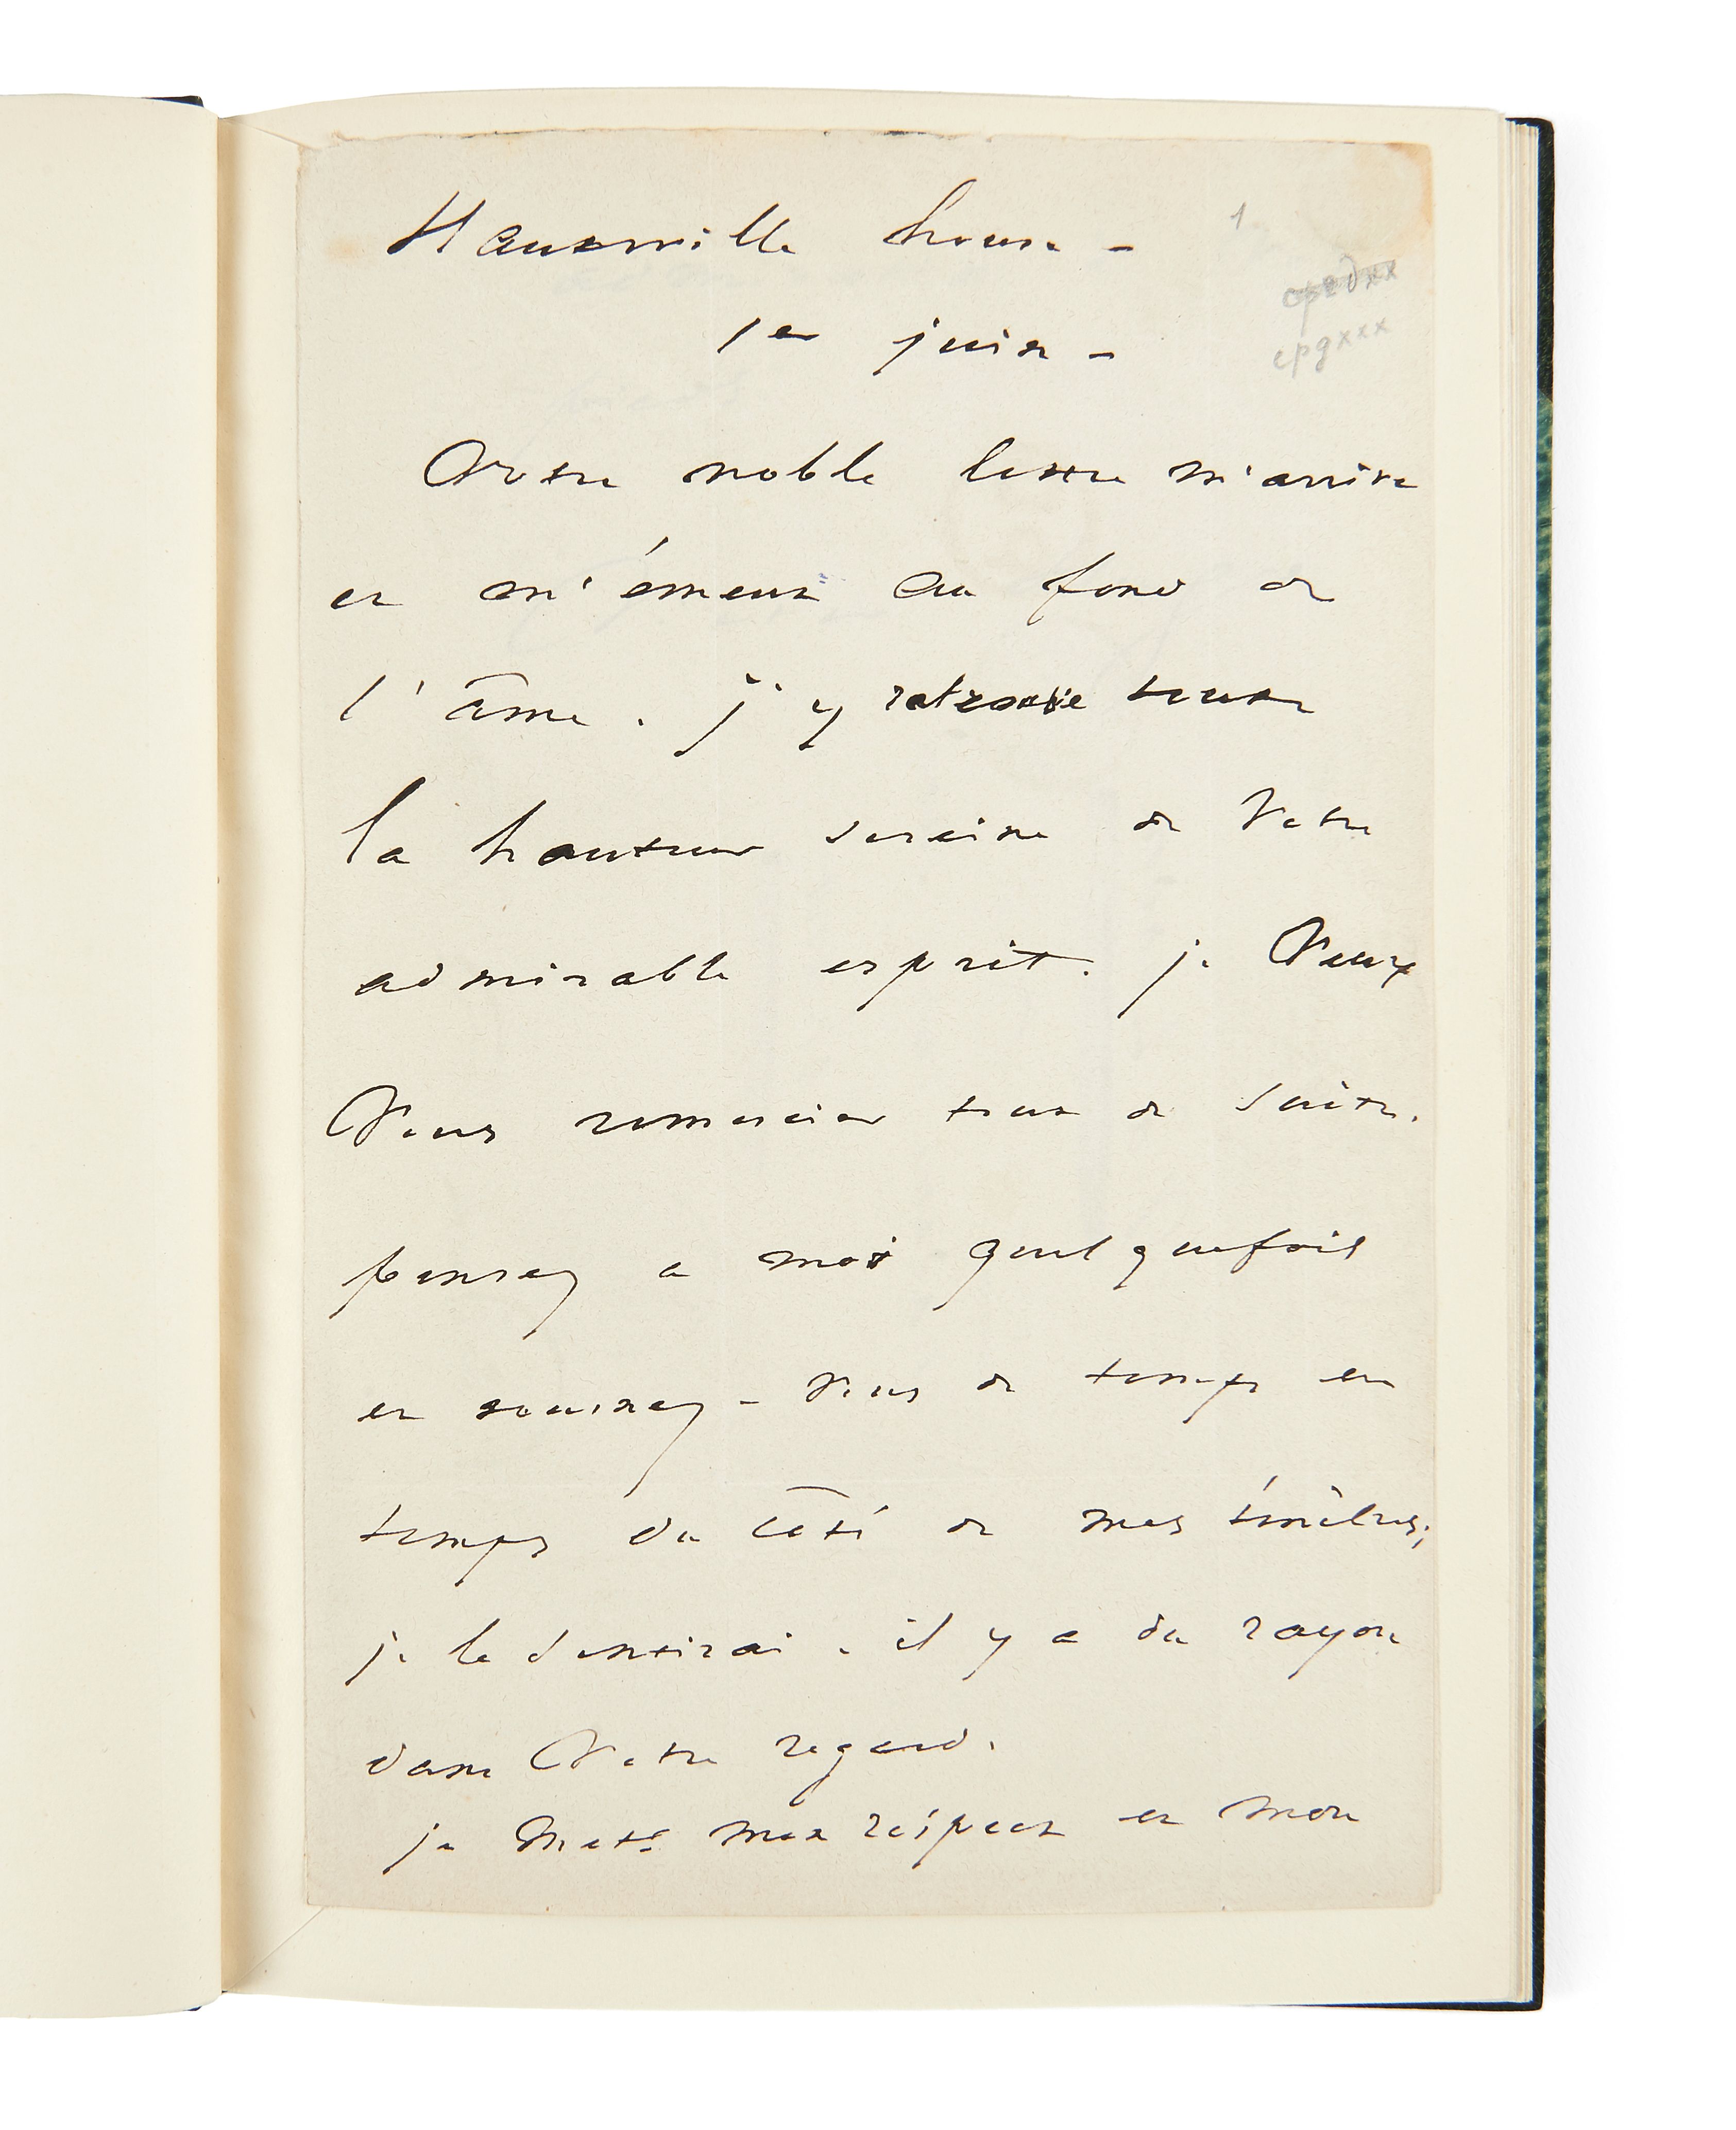 Hauteville house -
1er juin -
1
cpzdxx
cpgxxx
Votre noble lettre m'arrive
et m'émeut au fond de
l'âme. j'y retrouve toute
la hauteur sereine de votre
admirable esprit. je veux
vous remercier tout de suite.
pensez a moi quelquefois
et tournez-vous de temps en
temps du côté de mes ténèbres;
je le sentirai. il y a du rayon
dans votre regard.
je mets mon respect et mon